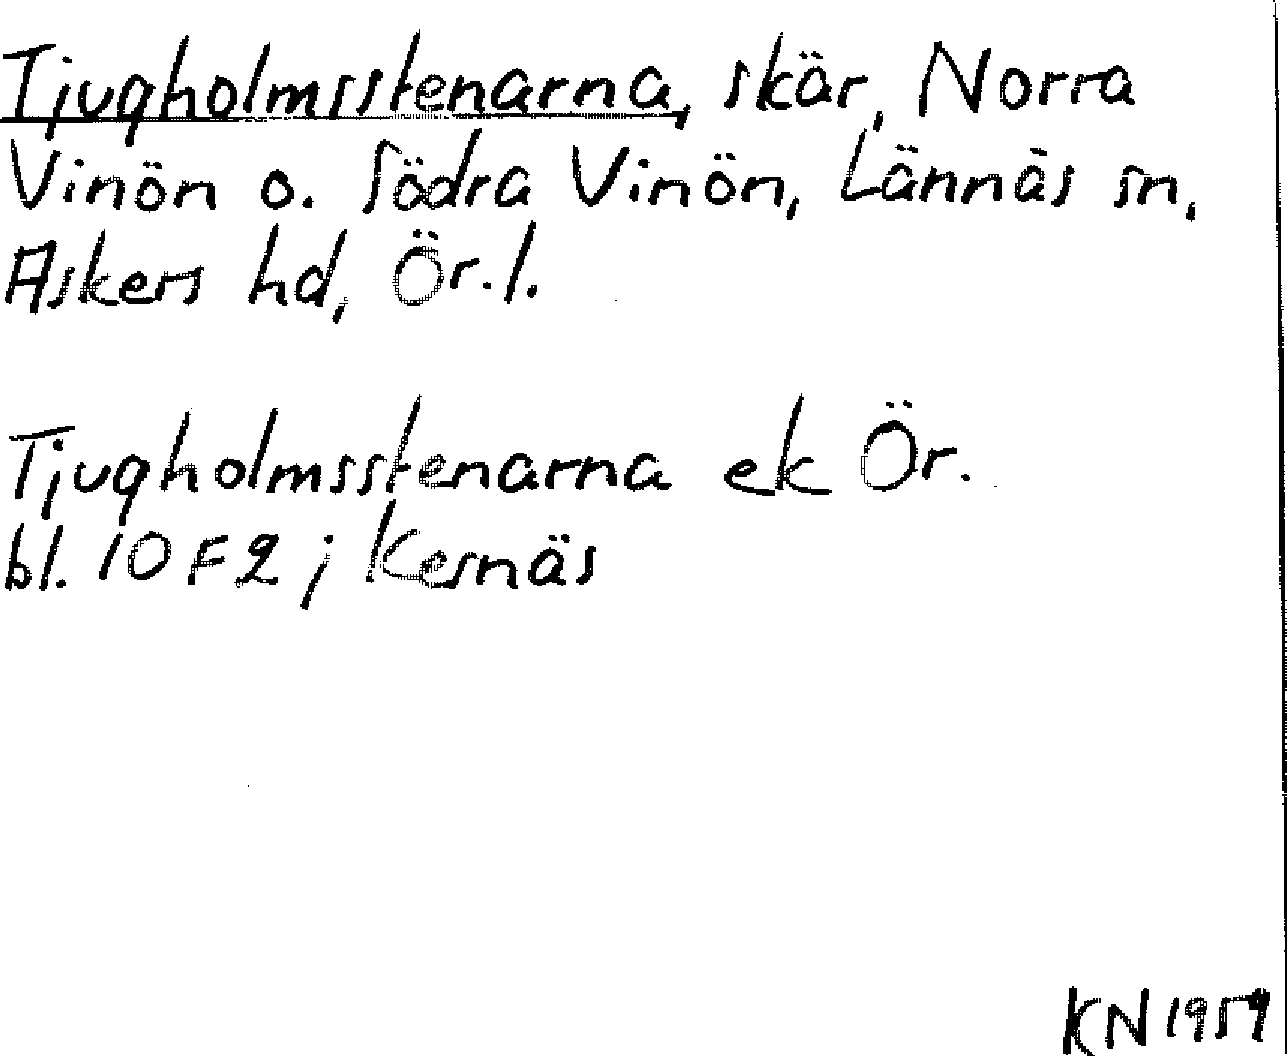 Tjugholmsstenarna, skär, Norra
Vinön o. Södra Vinön, Lännäs sn,
Askers hd, Ör.l.
Tjugholmsstenarna ek Ör.
bl. 10 F2; Kesnäs
KN 1959